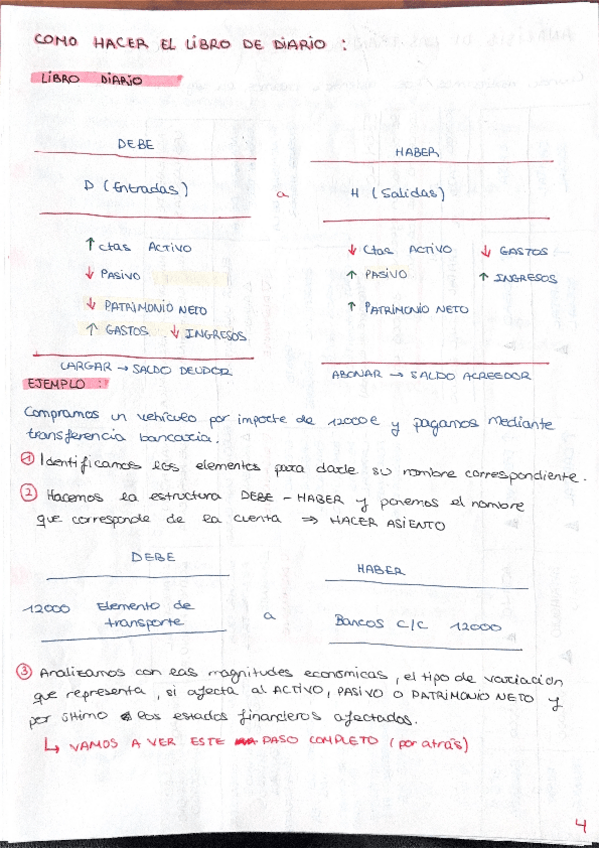 COMO HACER EL LIBRO DE DIARIO :
LIBRO DIARIO
DEBE
HABER
D (Entradas)
a
H (Salidas)
↑ ctas ACTIVO
↓ PASIVO
↓ PATRIMONIO NETO
↑ GASTOS ↓ INGRESOS
↓ Ctas ACTIVO ↓ GASTOS
↑ PASIVO ↑ INGRESOS
↑ PATRIMONIO NETO
CARGAR → SALDO DEUDOR
ABONAR → SALDO ACREEDOR
EJEMPLO :
Compramos un vehículo por importe de 12000€ y pagamos mediante
transferencia bancaria.
① Identificamos los elementos para darle su nombre correspondiente.
② Hacemos la estructura DEBE - HABER y ponemos el nombre
que corresponde de la cuenta ⇒ HACER ASIENTO
DEBE
HABER
12000 Elemento de
transporte
a
Bancos C/C 12000
③ Analizamos con las magnitudes economicas, el tipo de variación
que representa, si afecta al ACTIVO, PASIVO O PATRIMONIO NETO y
por último los estados financieros afectados.
↳ VAMOS A VER ESTE PASO COMPLETO (por atrás)
4